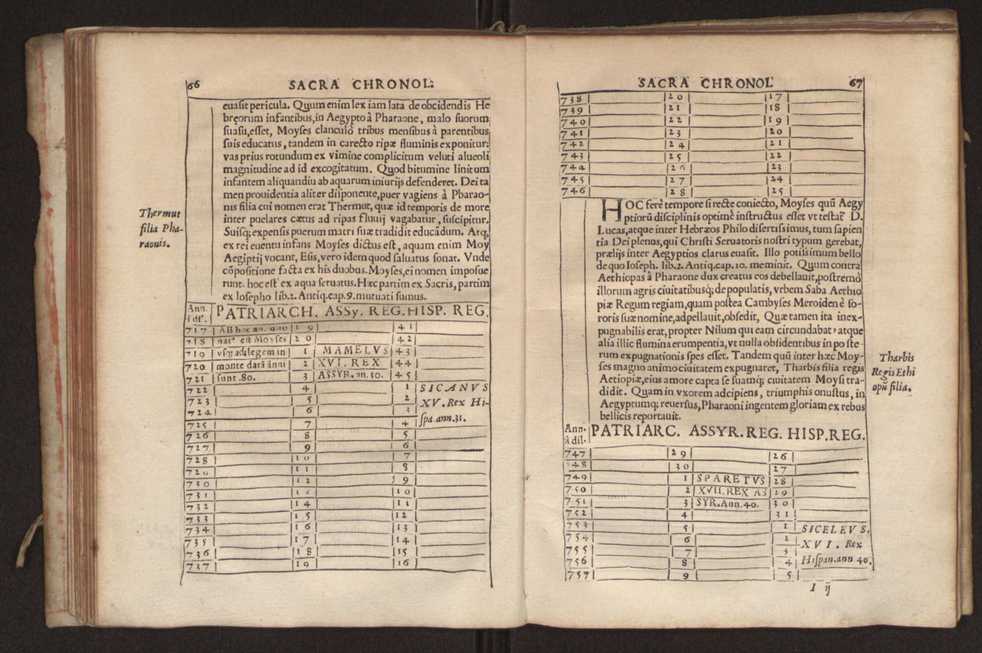 66 SACRA CHRONOL:
euasit pericula. Quum enim lex iam lata de obcidendis He
bręorum infantibus, in Aegypto à Pharaone, malo suorum
suasu, esset, Moyses clanculo tribus mensibus à parentibus
suis educatus, tandem in carecto ripæ fluminis exponitur:
vas prius rotundum ex vimine complicitum veluti alueoli
magnitudine ad id excogitatum. Quod bitumine linitum
infantem aliquandiu ab aquarum iniurijs defenderet. Dei ta
men prouidentia aliter disponente, puer vagiens à Pharao-
nis filia cui nomen erat Thermut, quæ id temporis de more
inter puelares cœtus ad ripas fluuij vagabatur, suscipitur.
Suisq; expensis puerum matri suæ tradidit educãdum. Atq,
ex rei euentu infans Moyses dictus est, aquam enim Moy
Aegiptij vocant, Esis, vero idem quod saluatus sonat. Vnde
cõpositione facta ex his duobus Moyses, ei nomen imposue
runt. hoc est ex aqua seruatus. Hæc partim ex Sacris, partim
ex Iosepho lib. 2. Antiq. cap. 9. mutuati sumus.
Thermut
filia Pha-
raonis.
Ann. à dil. PATRIARCH. ASSy. REG. HISP. REG.
717 Ab hoc an. quo 19 41
718 natº est Moyses 20 42
719 vsq; ad legem in 1 MAMELVS 43
720 monte datã anni 2 XVI. REX 44
721 sunt. 80. 3 ASSYR. an. 30. 45
722 4 1 SICANVS
723 5 2 XV. Rex Hi-
724 6 3 spa ann. 31.
725 7 4
726 8 5
727 9 6
728 10 7
729 11 8
730 12 9
731 13 10
732 14 11
733 15 12
734 16 13
735 17 14
736 18 15
737 19 16
SACRA CHRONOL 67
738 20 17
739 21 18
740 22 19
741 23 20
742 24 21
743 25 22
744 26 23
745 27 24
746 28 25
HOC ferè tempore si recte coniecto, Moyses quũ Aegy
ptiorũ disciplinis optimè instructus esset vt testaᷓ D.
Lucas, atque inter Hebræos Philo disertissimus, tum sapien
tia Dei plenus, qui Christi Seruatoris nostri typum gerebat,
prælijs inter Aegyptios clarus euasit. Illo potissimum bello
de quo Ioseph. lib. 2. Antiq. cap. 10. meminit. Quum contra
Aethiopas à Pharaone dux creatus eos debellauit, postremò
illorum agris ciuitatibusq; depopulatis, vrbem Saba Aethio
piæ Regum regiam, quam postea Cambyses Meroiden è so-
roris suæ nomine, adpellauit, obsedit, Quæ tamen ita inex-
pugnabilis erat, propter Nilum qui eam circundabat, atque
alia illic flumina erumpentia, vt nulla obsidentibus in poste
rum expugnationis spes esset. Tandem quũ inter hæc Moy-
ses magno animo ciuitatem expugnaret, Tharbis filia regis
Aetiopiæ, eius amore capta se suamq; ciuitatem Moysi tra-
didit. Quam in vxorem adcipiens, triumphis onustus, in
Aegyptumq; reuersus, Pharaoni ingentem gloriam ex rebus
bellicis reportauit.
Tharbis
Regis Ethi
opũ filia.
Ann. à dil. PATRIARC. ASSYR. REG. HISP. REG.
747 29 26
748 30 27
749 1 SPARETVS 28
750 2 XVII. REX AS 29
751 3 SYR. Ann. 40. 30
752 4 31
753 5 1 SICELEVS.
754 6 2 XVI. Rex
755 7 3 Hispan. ann 40.
756 8 4
757 9 5
I ij